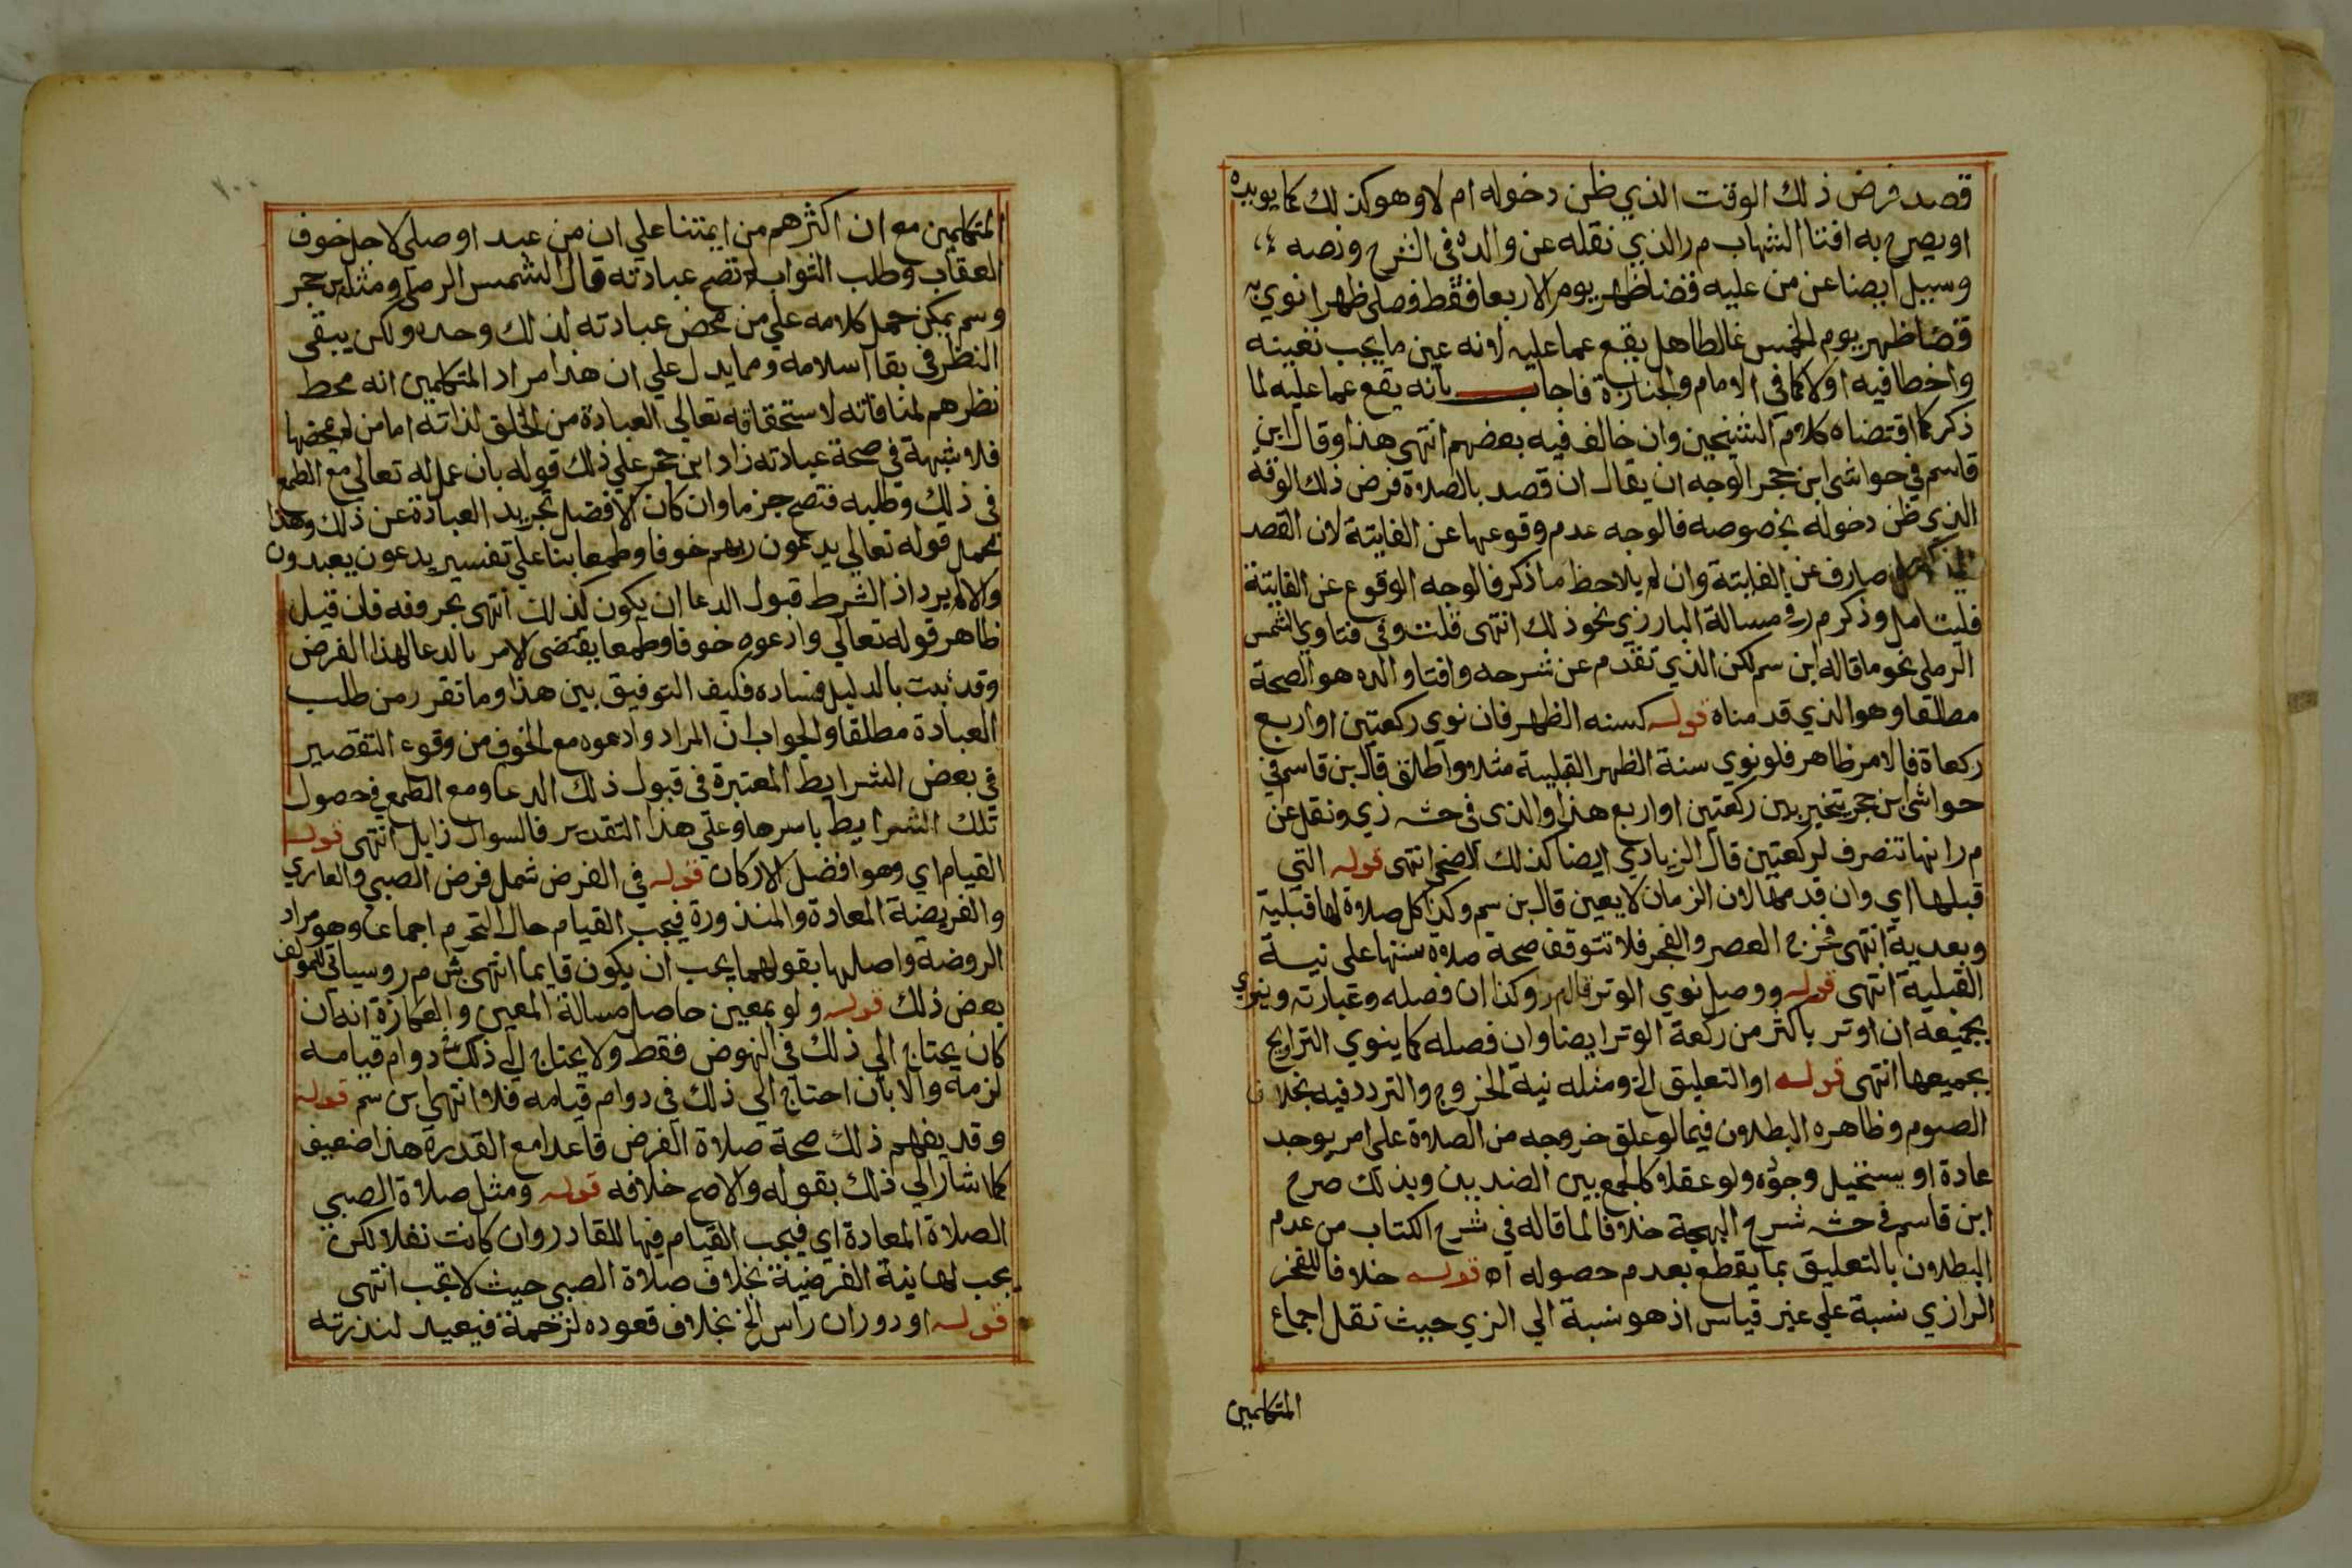 قصد فرض ذلك الوقت الذي ظن دخوله ام لا وهو كذلك كما يويده
او يصرح به افتا الشهاب م ر الذي نقله عن والده في الشرح ونصه
وسيل ايضا عن من عليه قضا ظهر يوم الاربعا فقط فصلى ظهرا نوي به
قضا ظهر يوم الخميس غالطا هل يقع عما عليه لانه عين ما يجب تعيينه
واخطا فيه اولا كما في الامام والجنازة فاجاب بانه يقع عما عليه لما
ذكر كما اقتضاه كلام الشيخين وان خالف فيه بعضهم انتهى هذا وقال ابن
قاسم في حواشي ابن حجر الوجه ان يقال ان قصد بالصلاة فرض ذلك الوقت
الذي ظن دخوله بخصوصه فالوجه عدم وقوعها عن الفايتة لان القصد
صارف عن الفايتة وان لم يلاحظ ما ذكر فالوجه الوقوع عن الفايتة
فليتامل وذكر م ر في مسالة البارزي نحو ذلك انتهى قلت وفي فتاوي الشمس
الرملي نحو ما قاله ابن سم لكن الذي تقدم عن شرحه وافتا والده هو الصحة
مطلقا وهو الذي قدمناه قوله كسنه الظهر فان نوي ركعتين او اربع
ركعاة فالامر ظاهر فلو نوي سنة الظهر القبلية مثلا واطلق قال بن قاسم في
حواشي ابن حجر يتخير بين ركعتين او اربع هذا والذي في حشـ زي ونقل عن
م ر انها تنصرف لركعتين قال الزيادي ايضا كذلك الضحى انتهى قوله التي
قبلها اي وان قدمها لان الزمان لا يعين قال بن سم وكذا كل صلاة لها قبلية
وبعدية انتهى فخرج العصر والفجر فلا تتوقف صحة صلاة سنتها على نية
القبلية انتهى قوله ووصل نوي الوتر قال م ر وكذا ان فصله وعبارته وينوي
بجميعه ان اوتر باكثر من ركعة الوتر ايضا وان فصله كما ينوي التراويح
بجميعها انتهى قوله او التعليق الخ ومثله نية الخروج والتردد فيه بخلاف
الصوم وظاهره البطلان فيما لو علق خروجه من الصلاة على امر يوجد
عادة او يستحيل وجوده ولو عقلا كالجمع بين الضدين وبذلك صرح
ابن قاسم في حشـ شرح البهجة خلافا لما قاله في شرح الكتاب من عدم
البطلان بالتعليق بما يقطع بعدم حصوله اه قوله خلافا للفخر
الرازي نسبة على غير قياس اذ هو نسبة الي الري حيث نقل اجماع
المتكلمين
المتكلمين مع ان اكثرهم من ايمتنا علي ان من عبد او صلى لاجل خوف
العقاب وطلب الثواب لم تصح عبادته قال الشمس الرملي ومثله بن حجر
وسم يمكن حمل كلامه علي من محض عبادته لذلك وحده ولكن يبقى
النظر في بقا اسلامه ومما يدل علي ان هذا مراد المتكلمين انه محط
نظرهم لمنافاته لاستحقاقه تعالي العبادة من الخلق لذاته اما من لم يمحضها
فلا شبهة في صحة عبادته زاد ابن حجر علي ذلك قوله بان عمل لله تعالى مع الطمع
في ذلك وطلبه فتصح جزما وان كان الافضل تجريد العبادة عن ذلك وهذا
محمل قوله تعالي يدعون ربهم خوفا وطمعا بنا علي تفسير يدعون يعبدون
والا لم يرد اذ الشرط قبول الدعا ان يكون كذلك انتهى بحروفه فان قيل
ظاهر قوله تعالي وادعوه خوفا وطمعا يقتضي الامر بالدعا لهذا الفرض
وقد ثبت بالدليل فساده فكيف التوفيق بين هذا وما تقرر من طلب
العبادة مطلقا والجواب ان المراد وادعوه مع الخوف من وقوع التقصير
في بعض الشرايط المعتبرة في قبول ذلك الدعا ومع الطمع في حصول
تلك الشرايط باسرها وعلي هذا التقدير فالسوال زايل انتهى قوله
القيام اي وهو افضل الاركان قوله في الفرض شمل فرض الصبي والعاري
والفريضة المعادة والمنذورة فيجب القيام حال التحرم اجماعا وهو مراد
الروضة واصلها بقولهما يجب ان يكون قايما انتهى ش م ر وسياتي للمولف
بعض ذلك قوله ولو بمعين حاصل مسالة المعين والعكازة انه ان
كان يحتاج الي ذلك في النهوض فقط ولا يحتاج الي ذلك في دوام قيامه
لزمه والا بان احتاج الي ذلك في دوام قيامه فلا انتهى بن سم قوله
وقد يفهم ذلك صحة صلاة الفرض قاعدا مع القدرة هذا ضعيف
كما اشار الي ذلك بقوله والاصح خلافه قوله ومثل صلاة الصبي
الصلاة المعادة اي فيجب القيام فيها للقادر وان كانت نفلا لكن
يجب لها نية الفرضية بخلاف صلاة الصبي حيث لا تجب انتهى
قوله او دوران راس الخ بخلاف قعوده لزحمة فيعيد لندرته